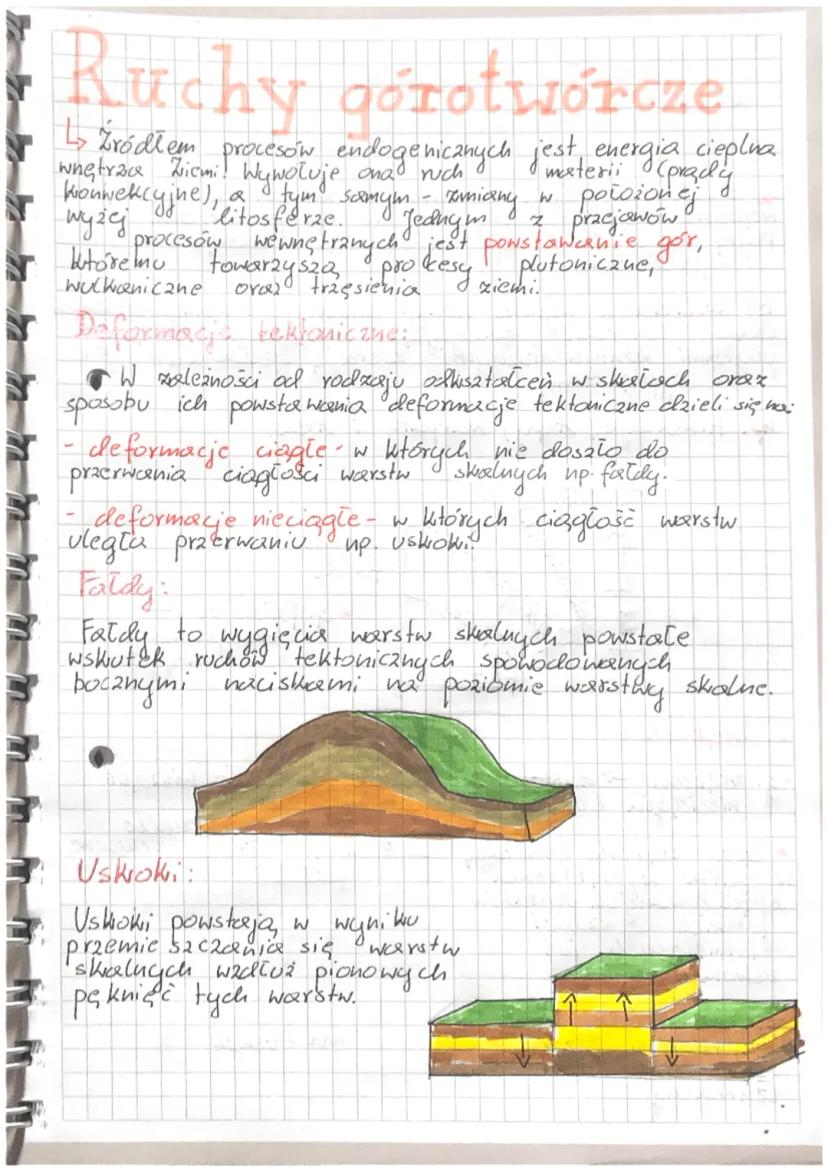 Ruchy górotwórcze
↳ Źródłem procesów endogenicznych jest energia cieplna
wnętrza Ziemi! Wywołuje ona ruch materii (prądy
konwekcyjne), a tym samym - zmiany w położonej
wyżej litosferze. Jednym z przejawów
procesów wewnętrznych jest powstawanie gór,
któremu towarzyszą procesy plutoniczne,
wulkaniczne oraz trzęsienia ziemi.
Deformacje tektoniczne:
W zależności od rodzaju odkształceń w skałach oraz
sposobu ich powstawania deformacje tektoniczne dzieli się na:
- deformacje ciągłe - w których nie doszło do
przerwania ciągłości warstw skalnych np. fałdy.
- deformacje nieciągłe - w których ciągłość warstw
uległa przerwaniu np. uskoki.
Fałdy:
Fałdy to wygięcia warstw skalnych powstałe
wskutek ruchów tektonicznych spowodowanych
bocznymi naciskami na poziomie warstwy skalne.
Uskoki:
Uskoki powstają w wyniku
przemieszczania się warstw
skalnych wzdłuż pionowych
pęknięć tych warstw.